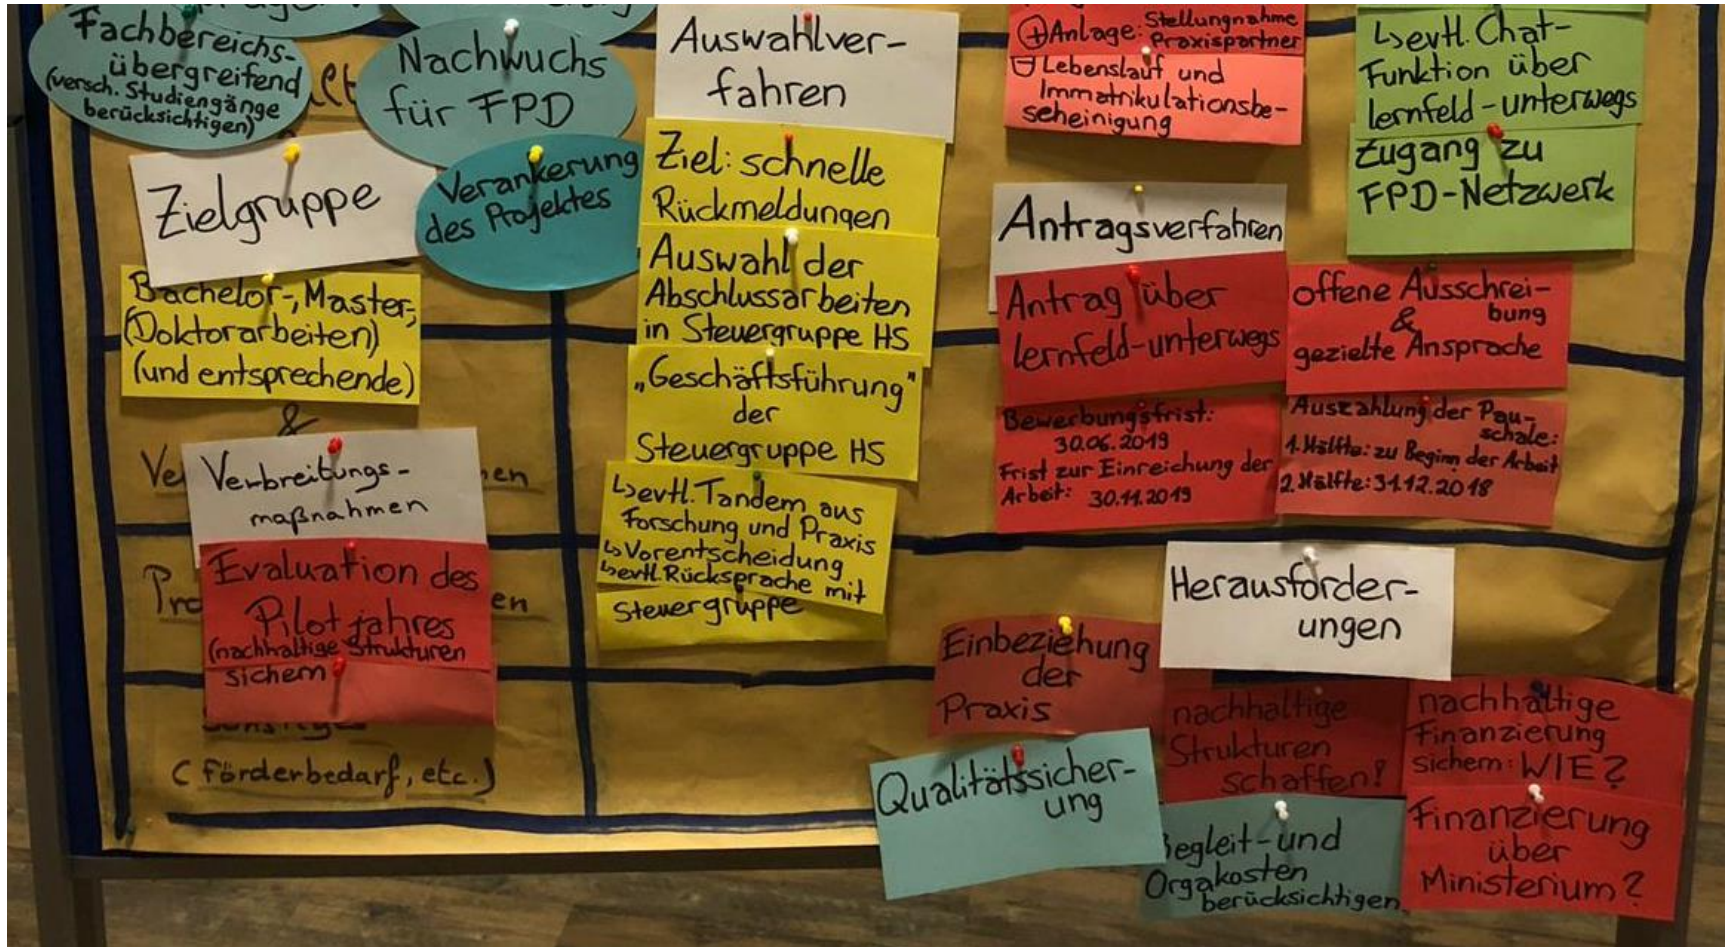 Fachbereichs-
übergreifend
(versch. Studiengänge
berücksichtigen)
Nachwuchs
für FPD
Verankerung
des Projektes
Zielgruppe
Bachelor-, Master-,
(Doktorarbeiten)
(und entsprechende)
&
Verbreitungs-
maßnahmen
Evaluation des
Pilotjahres
(nachhaltige Strukturen
sichern
(Förderbedarf, etc.)
Auswahlver-
fahren
Ziel: schnelle
Rückmeldungen
Auswahl der
Abschlussarbeiten
in Steuergruppe HS
„Geschäftsführung"
der
Steuergruppe HS
↳evtl. Tandem aus
Forschung und Praxis
↳Vorentscheidung
↳evtl. Rücksprache mit
Steuergruppe
⊕Anlage: Stellungnahme
Praxispartner
Lebenslauf und
Immatrikulationsbe-
scheinigung
Antragsverfahren
Antrag über
lernfeld-unterwegs
offene Ausschrei-
bung
&
gezielte Ansprache
Bewerbungsfrist:
30.06.2019
Frist zur Einreichung der
Arbeit: 30.11.2019
Auszahlung der Pau-
schale:
1. Hälfte: zu Beginn der Arbeit
2. Hälfte: 31.12.2018
↳evtl. Chat-
Funktion über
lernfeld-unterwegs
Zugang zu
FPD-Netzwerk
Herausforder-
ungen
Einbeziehung
der
Praxis
nachhaltige
Strukturen
schaffen!
nachhaltige
Finanzierung
sichern: WIE?
Qualitätssicher-
ung
egleit- und
Orgakosten
berücksichtigen
Finanzierung
über
Ministerium?